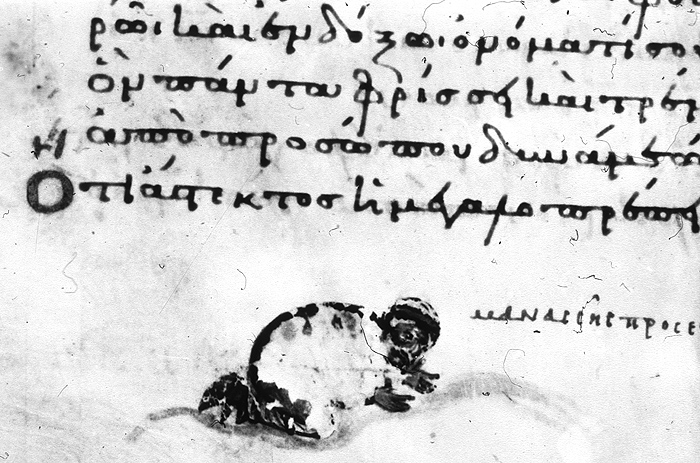 ρῶι καὶ ἐνδόξωι ὀνόματί σου
ὃν πάντα φρίσσει καὶ τρέμ
ἀπὸ προσώπου δυνάμεώ
Ὅτι ἄστεκτος ἡ μεγαλοπρέπε
μανασσῆς προσε